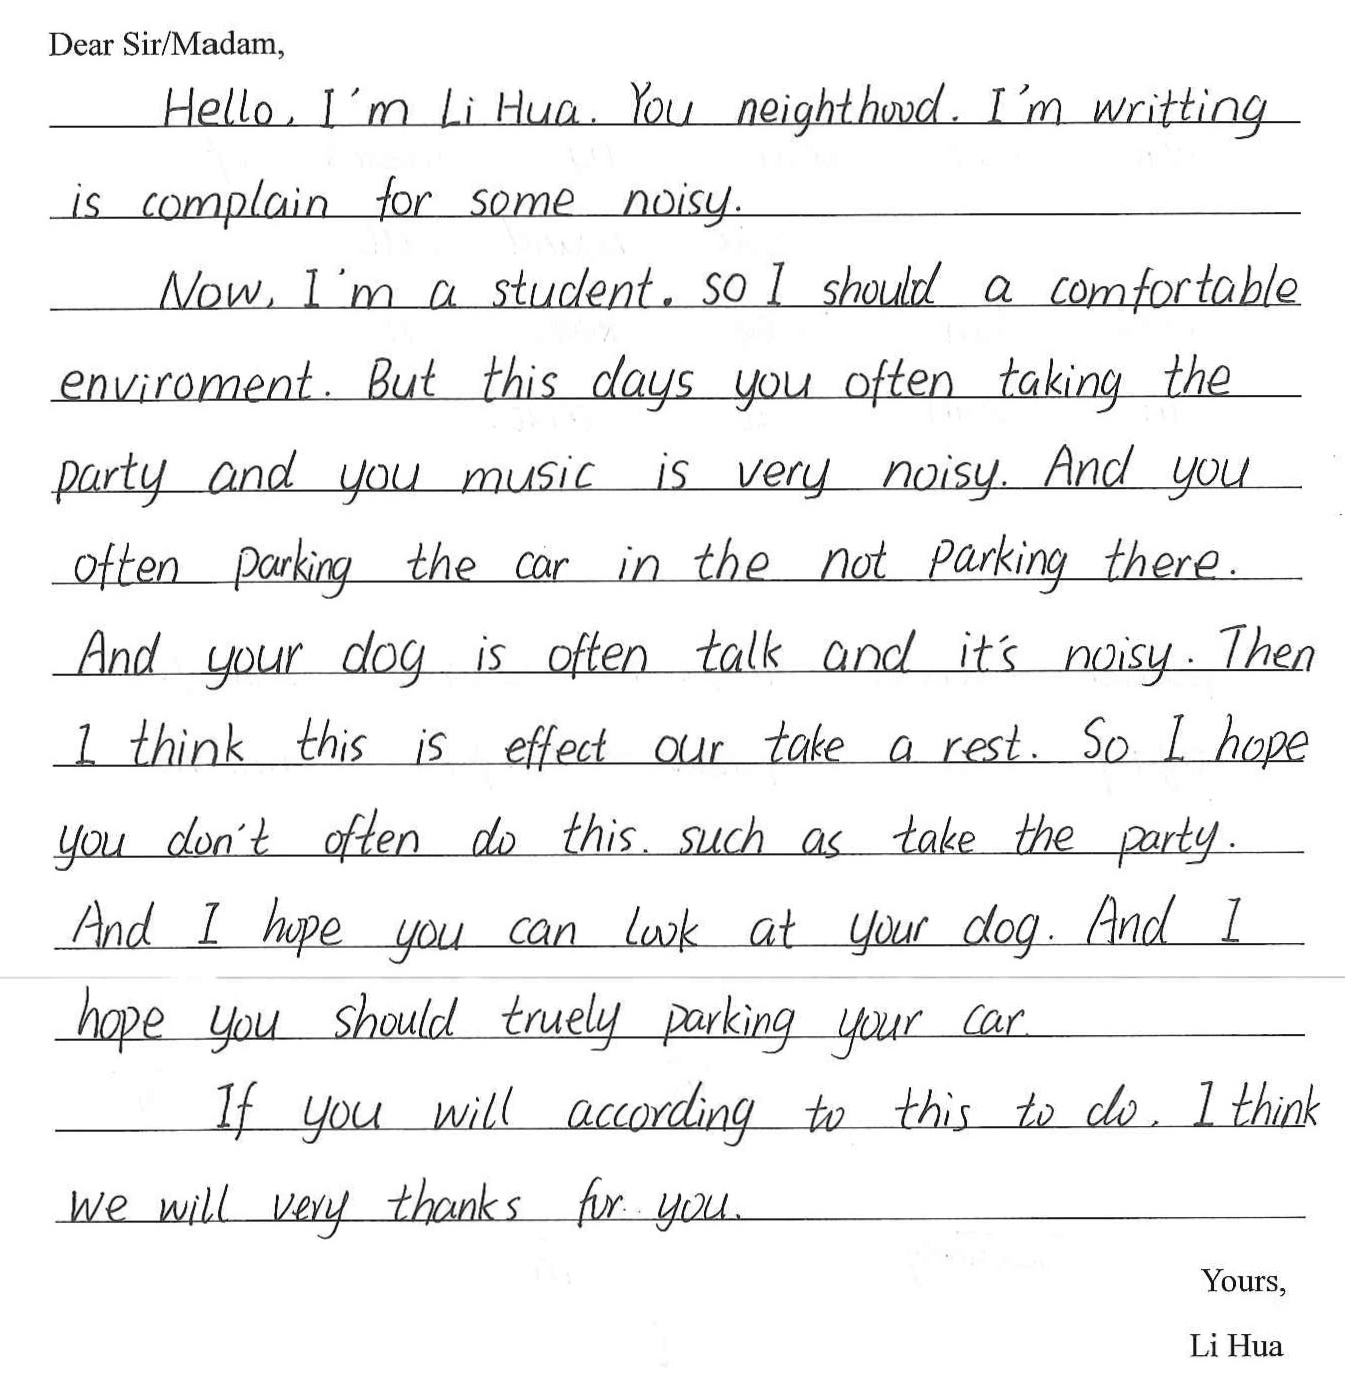 Dear Sir/Madam,
Hello, I'm Li Hua. You neighthood. I'm writting
is complain for some noisy.
Now, I'm a student. so I should a comfortable
enviroment. But this days you often taking the
party and you music is very noisy. And you
often parking the car in the not parking there.
And your dog is often talk and it's noisy. Then
I think this is effect our take a rest. So I hope
you don't often do this. such as take the party.
And I hope you can look at your dog. And I
hope you should truely parking your car.
If you will according to this to do. I think
we will very thanks for you.
Yours,
Li Hua